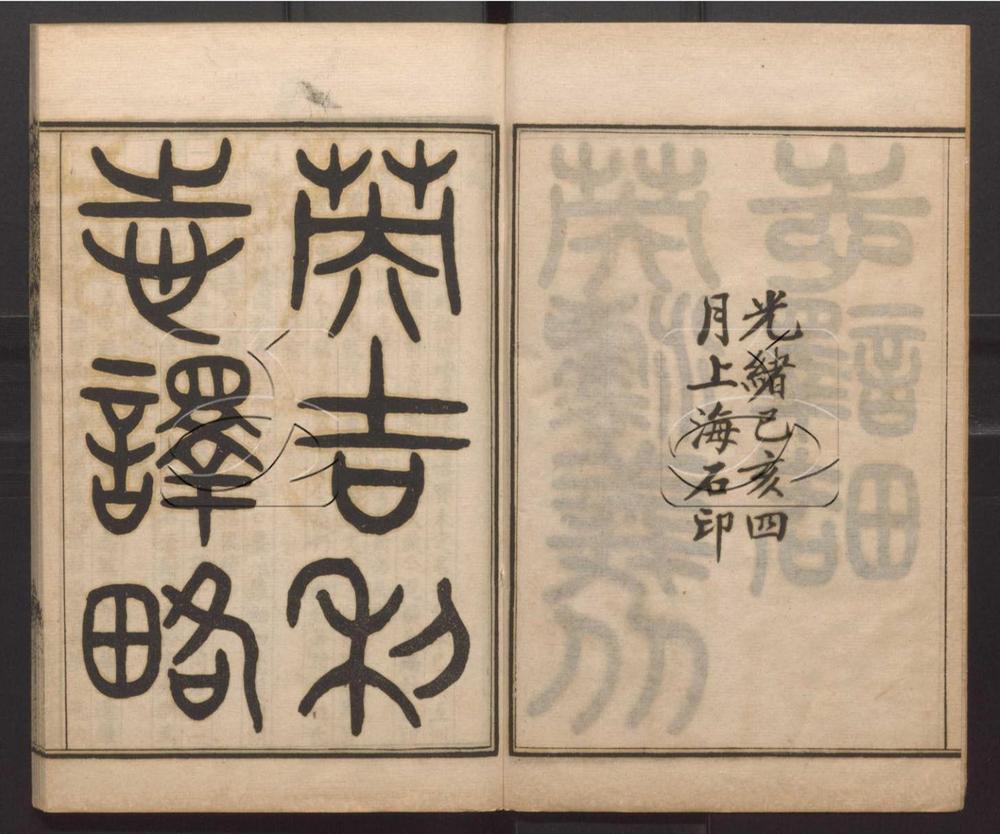 光緒己亥四
月上海石印
英吉利
志譯略